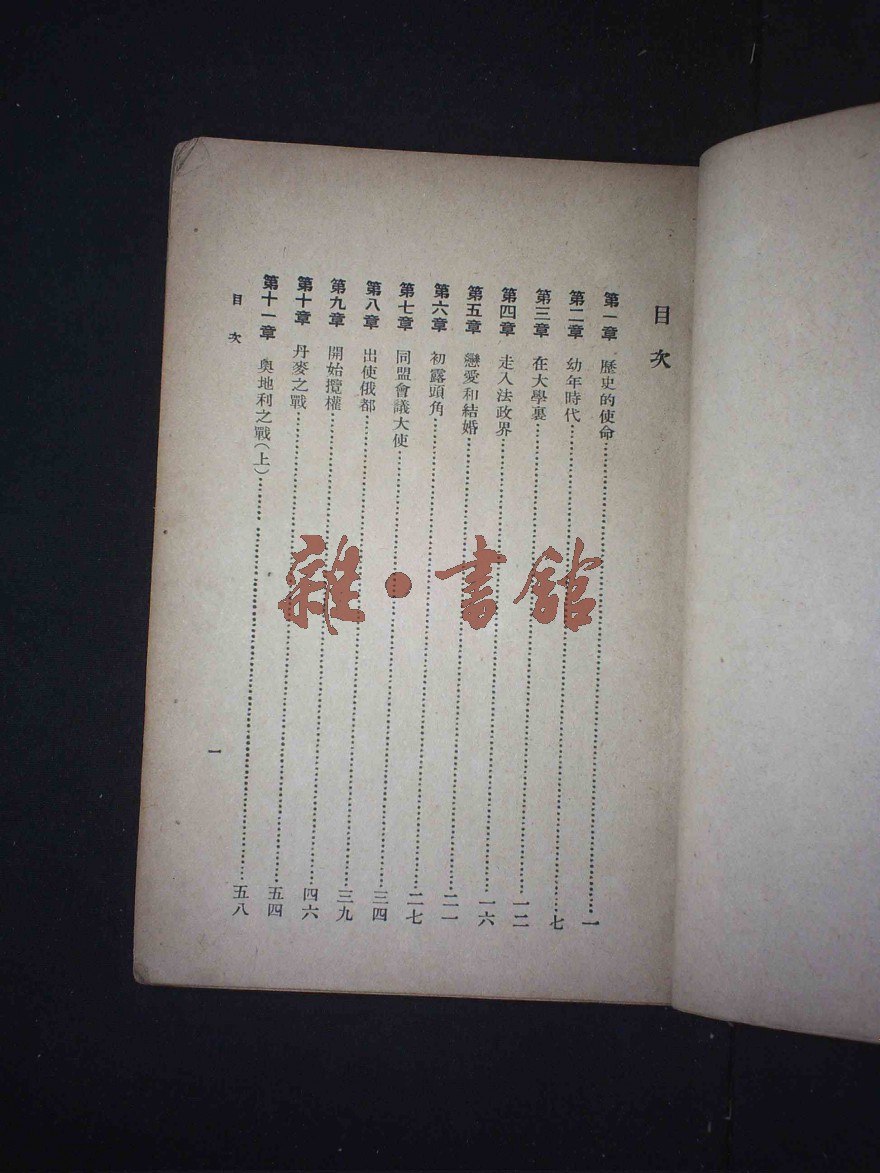 目次
第一章 歷史的使命 一
第二章 幼年時代 七
第三章 在大學裏 一二
第四章 走入法政界 一六
第五章 戀愛和結婚 二一
第六章 初露頭角 二七
第七章 同盟會議大使 三四
第八章 出使俄都 三九
第九章 開始攬權 四六
第十章 丹麥之戰 五四
第十一章 奧地利之戰(上) 五八
目次
一
雜·書館